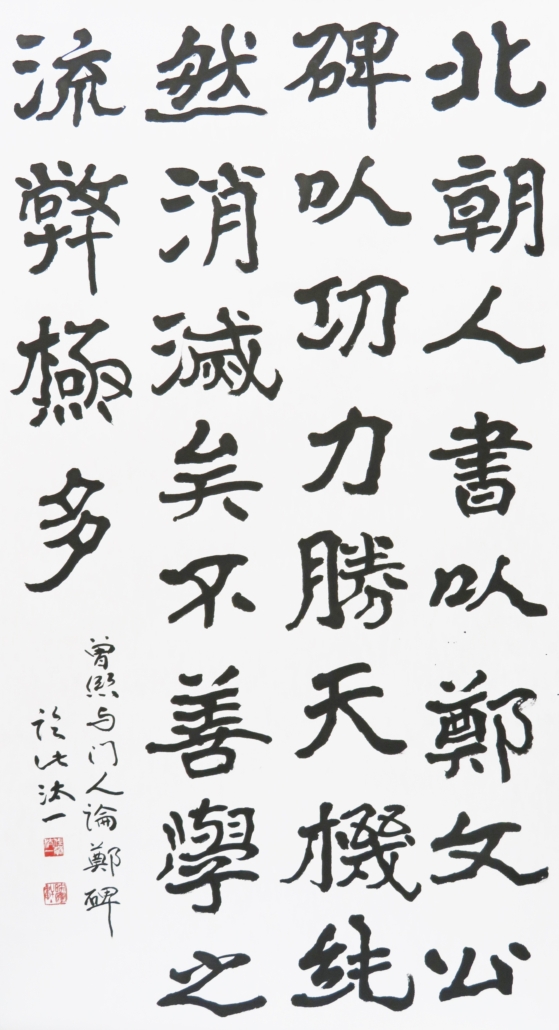 北朝人書以鄭文公
碑以功力勝天機純
然消滅矣不善學之
流弊極多
曾熙与门人論鄭碑